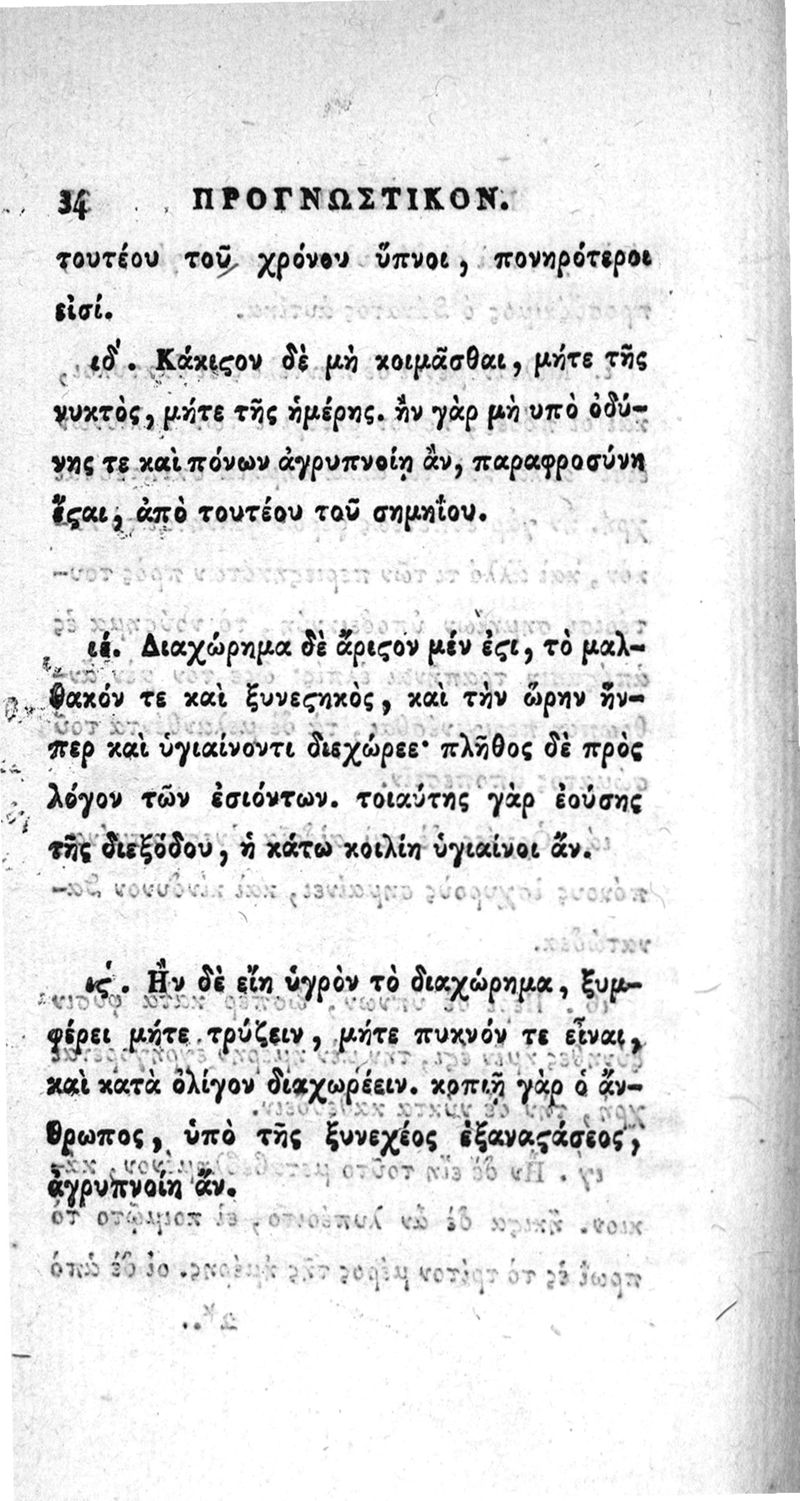 34 ΠΡΟΓΝΩΣΤΙΚΟΝ.
τουτέου τοῦ χρόνου ὕπνοι, πονηρότεροι
εἰσί.
ιδ΄. Κάκιϛον δὲ μὴ κοιμᾶσθαι, μήτε τῆς
νυκτὸς, μήτε τῆς ἡμέρης. ἢν γὰρ μὴ υπὸ ὀδύ-
νης τε καὶ πόνων ἀγρυπνοίη ἂν, παραφροσύνη
ἔϛαι, ἀπὸ τουτέου τοῦ σημηΐου.
ιέ. Διαχώρημα δὲ ἄριϛον μέν ἐϛι, τὸ μαλ-
θακόν τε καὶ ξυνεϛηκὸς, καὶ τὴν ὥρην ἥν-
περ καὶ ὑγιαίνοντι διεχώρεε· πλῆθος δὲ πρὸς
λόγον τῶν ἐσιόντων. τοιαύτης γὰρ ἐούσης
τῆς διεξόδου, ἡ κάτω κοιλίη ὑγιαίνοι ἄν.
ιϛ΄. Ἢν δὲ εἴη ὑγρὸν τὸ διαχώρημα, ξυμ-
φέρει μήτε τρύζειν, μήτε πυκνόν τε εἶναι,
καὶ κατὰ ὀλίγον διαχωρέειν. κοπιῇ γὰρ ὁ ἄν-
θρωπος, ὑπὸ τῆς ξυνεχέος ἐξαναϛάσεος,
ἀγρυπνοίη ἄν.